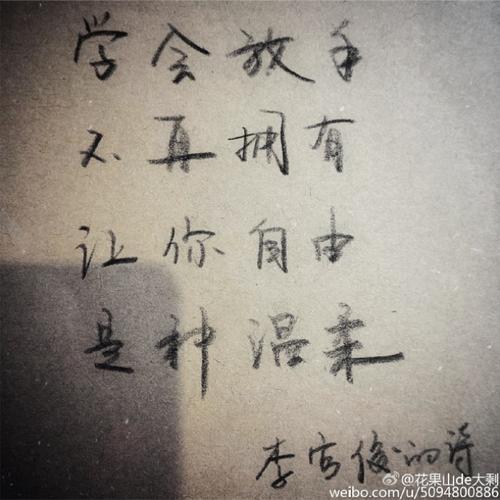 学会放手
不再拥有
让你自由
是种温柔
李官俊的诗
@花果山de大剩
weibo.com/u/5094800886